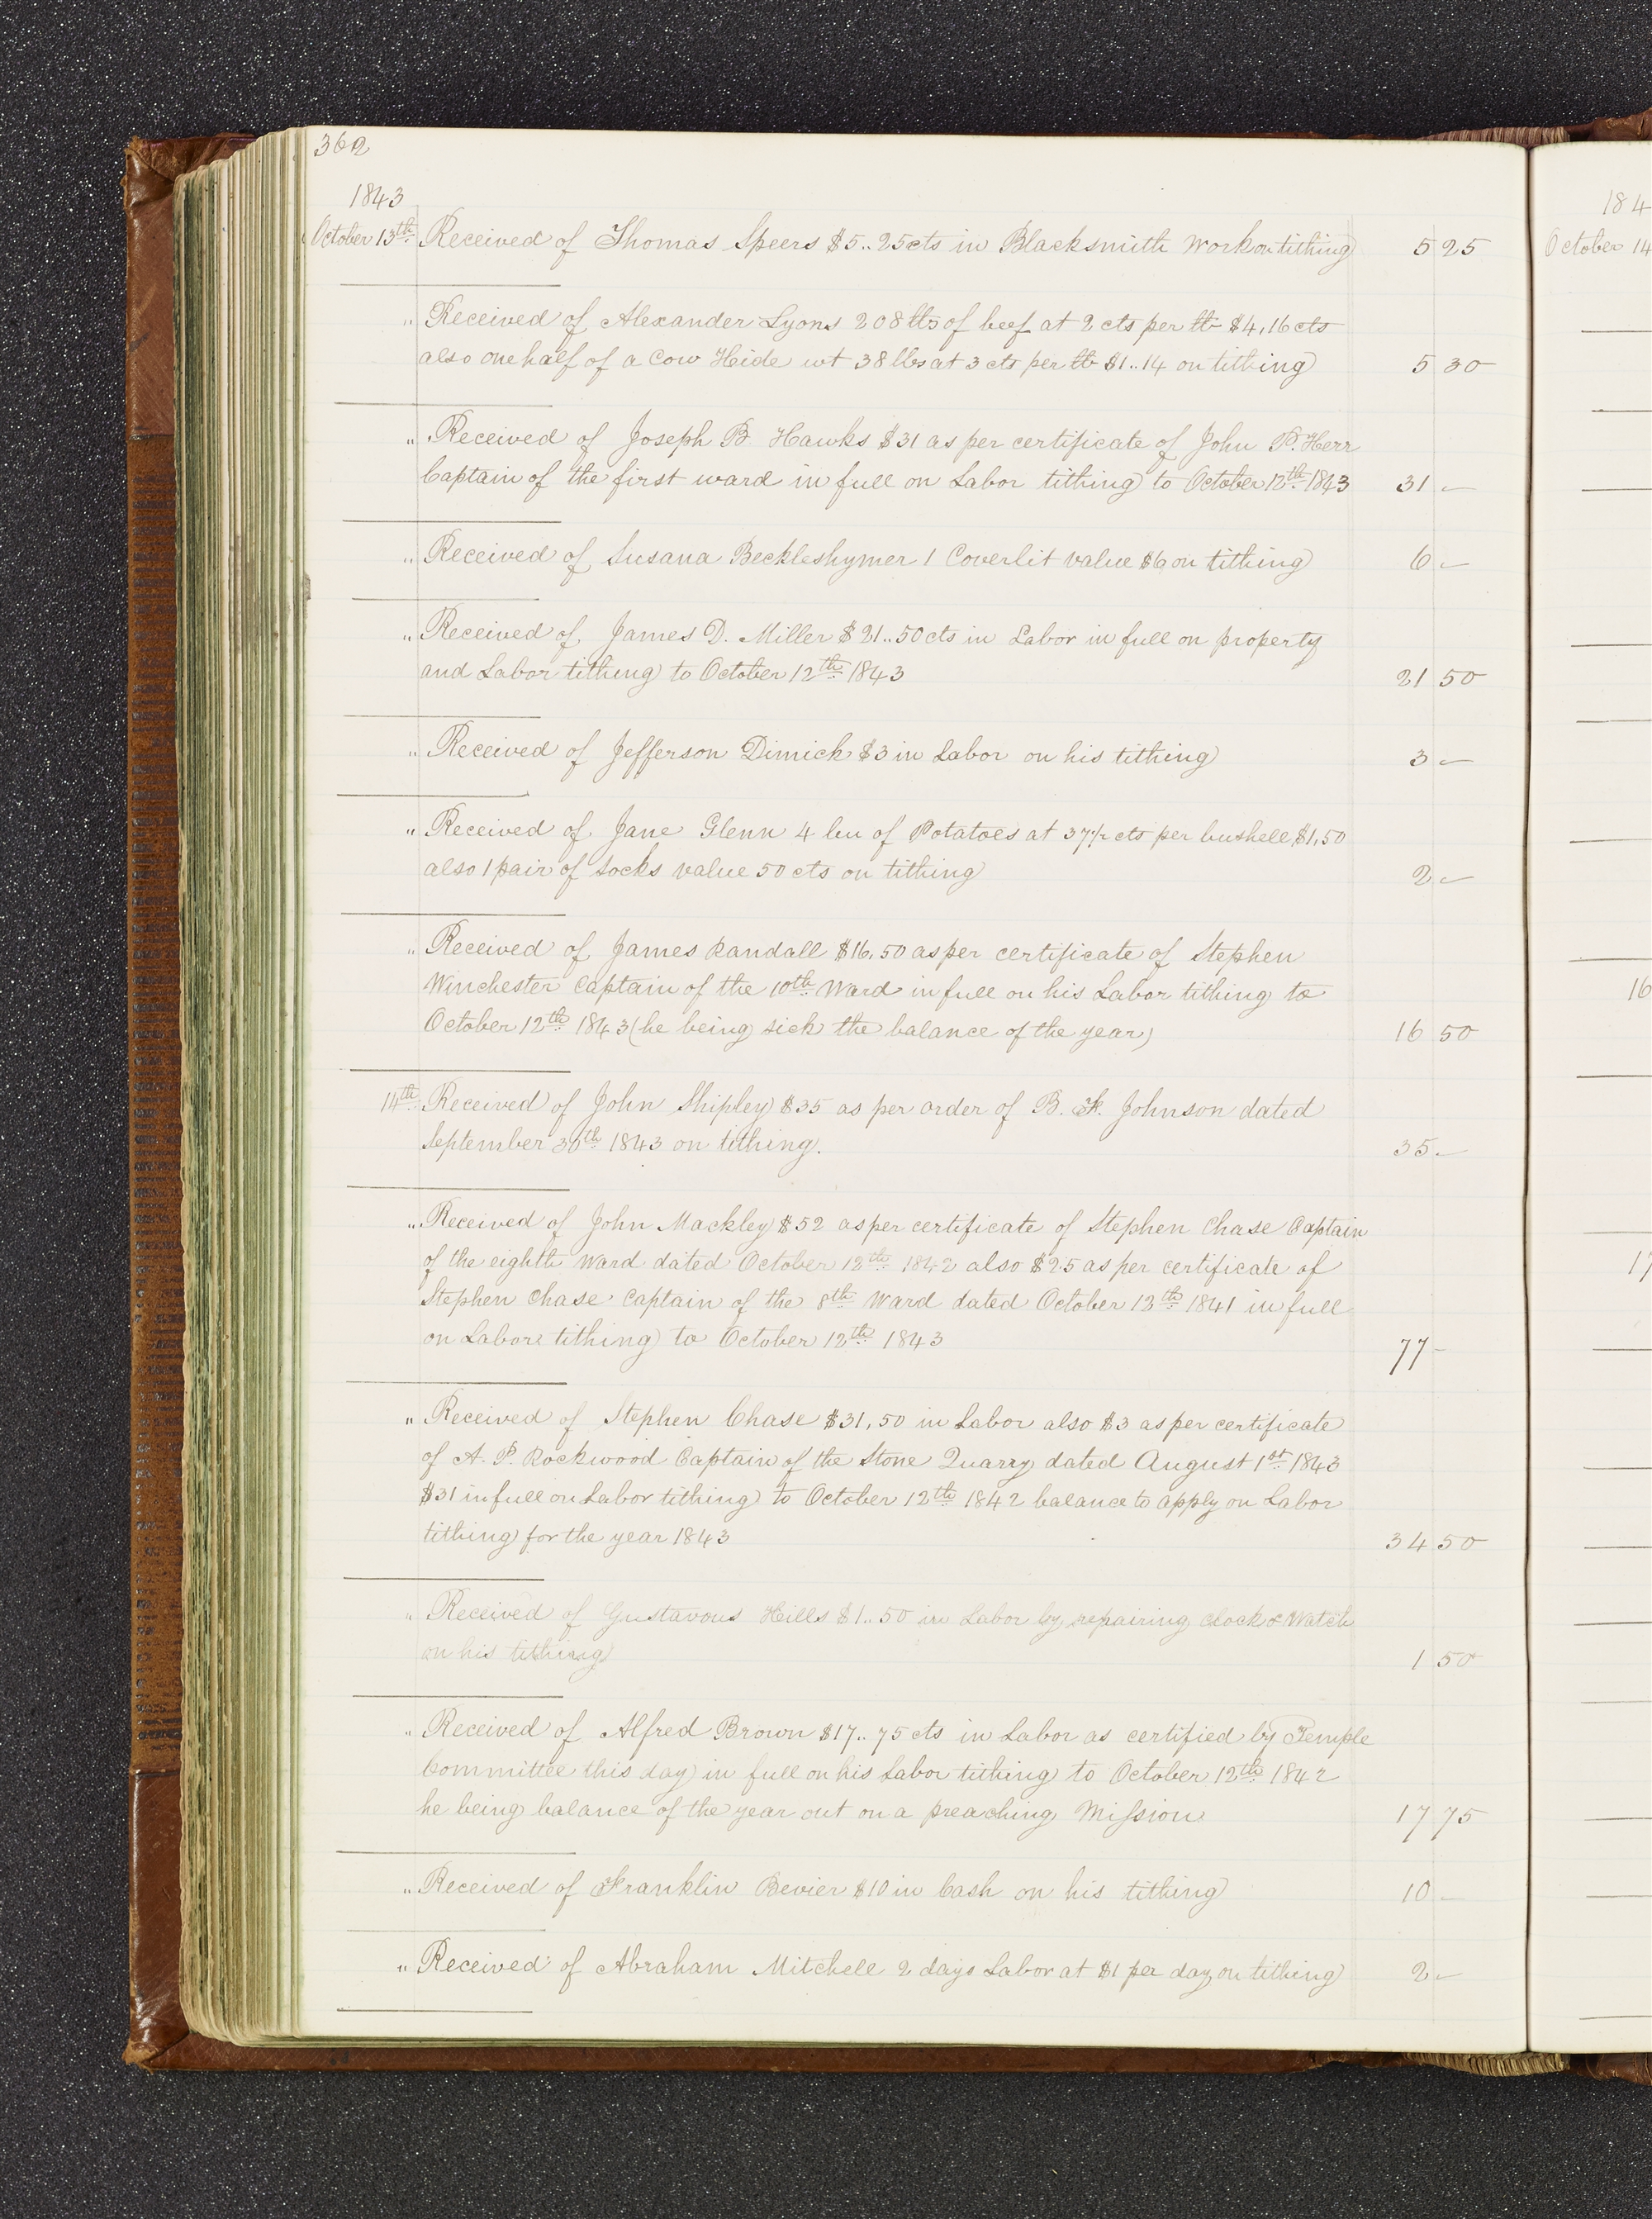 362
1843
October 13th Received of Thomas Speers $5..25cts in Blacksmith work on tithing 5 25
" Received of Alexander Lyons 208 lbs of beef at 2 cts per lb $4,16 cts
also one half of a Cow Heide wt 38 lbs at 3 cts per lb $1..14 on tithing 5 30
" Received of Joseph B Hawks $31 as per certificate of John P. Herr
Captain of the first ward in full on Labor tithing to October 12th 1843 31 -
" Received of Susana Beckleshymer 1 Coverlit value $6 on tithing 6 -
" Received of James D. Miller $21..50 cts in Labor in full on property
and Labor tithing to October 12th 1843 21 50
" Received of Jefferson Dimick $3 in Labor on his tithing 3 -
" Received of Jane Glenn 4 bu of Potatoes at 37 1/2 cts per bushell $1,50
also 1 pair of socks value 50 cts on tithing 2 -
" Received of James Randall $16,50 as per certificate of Stephen
Winchester Captain of the 10th Ward in full on his Labor tithing to
October 12th 1843 (he being sick the balance of the year) 16 50
14th Received of John Shipley $35 as per order of B. F. Johnson dated
September 30th 1843 on tithing. 35 -
" Received of John Mackley $52 as per certificate of Stephen Chase Captain
of the eighth Ward dated October 12th 1842 also $25 as per certificate of
Stephen Chase Captain of the 8th Ward dated October 12th 1841 in full
on Labor tithing to October 12th 1843 77 -
" Received of Stephen Chase $31,50 in Labor also $3 as per certificate
of A. P. Rockwood Captain of the Stone Quarry dated August 1st 1843
$31 in full on Labor tithing to October 12th 1842 balance to apply on Labor
tithing for the year 1843 34 50
" Received of Gustavous Hills $1..50 in Labor by repairing clock & Watch
on his tithing 1 50
" Received of Alfred Brown $17..75 cts in Labor as certified by Temple
Committee this day in full on his Labor tithing to October 12th 1842
he being balance of the year out on a preaching Mission 17 75
" Received of Franklin Bevier $10 in Cash on his tithing 10 -
" Received of Abraham Mitchell 2 days Labor at $1 per day on tithing 2 -
184
October 14
16
17